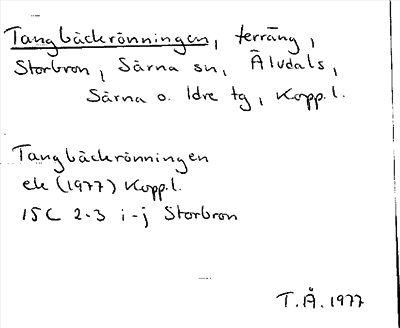 Tangbäckrönningen, terräng,
Storbron, Särna sn, Älvdals,
Särna o. Idre tg, Kopp.l.
Tangbäckrönningen
ek (1977) Kopp.l.
15C 2-3 i-j Storbron
T.Å. 1977